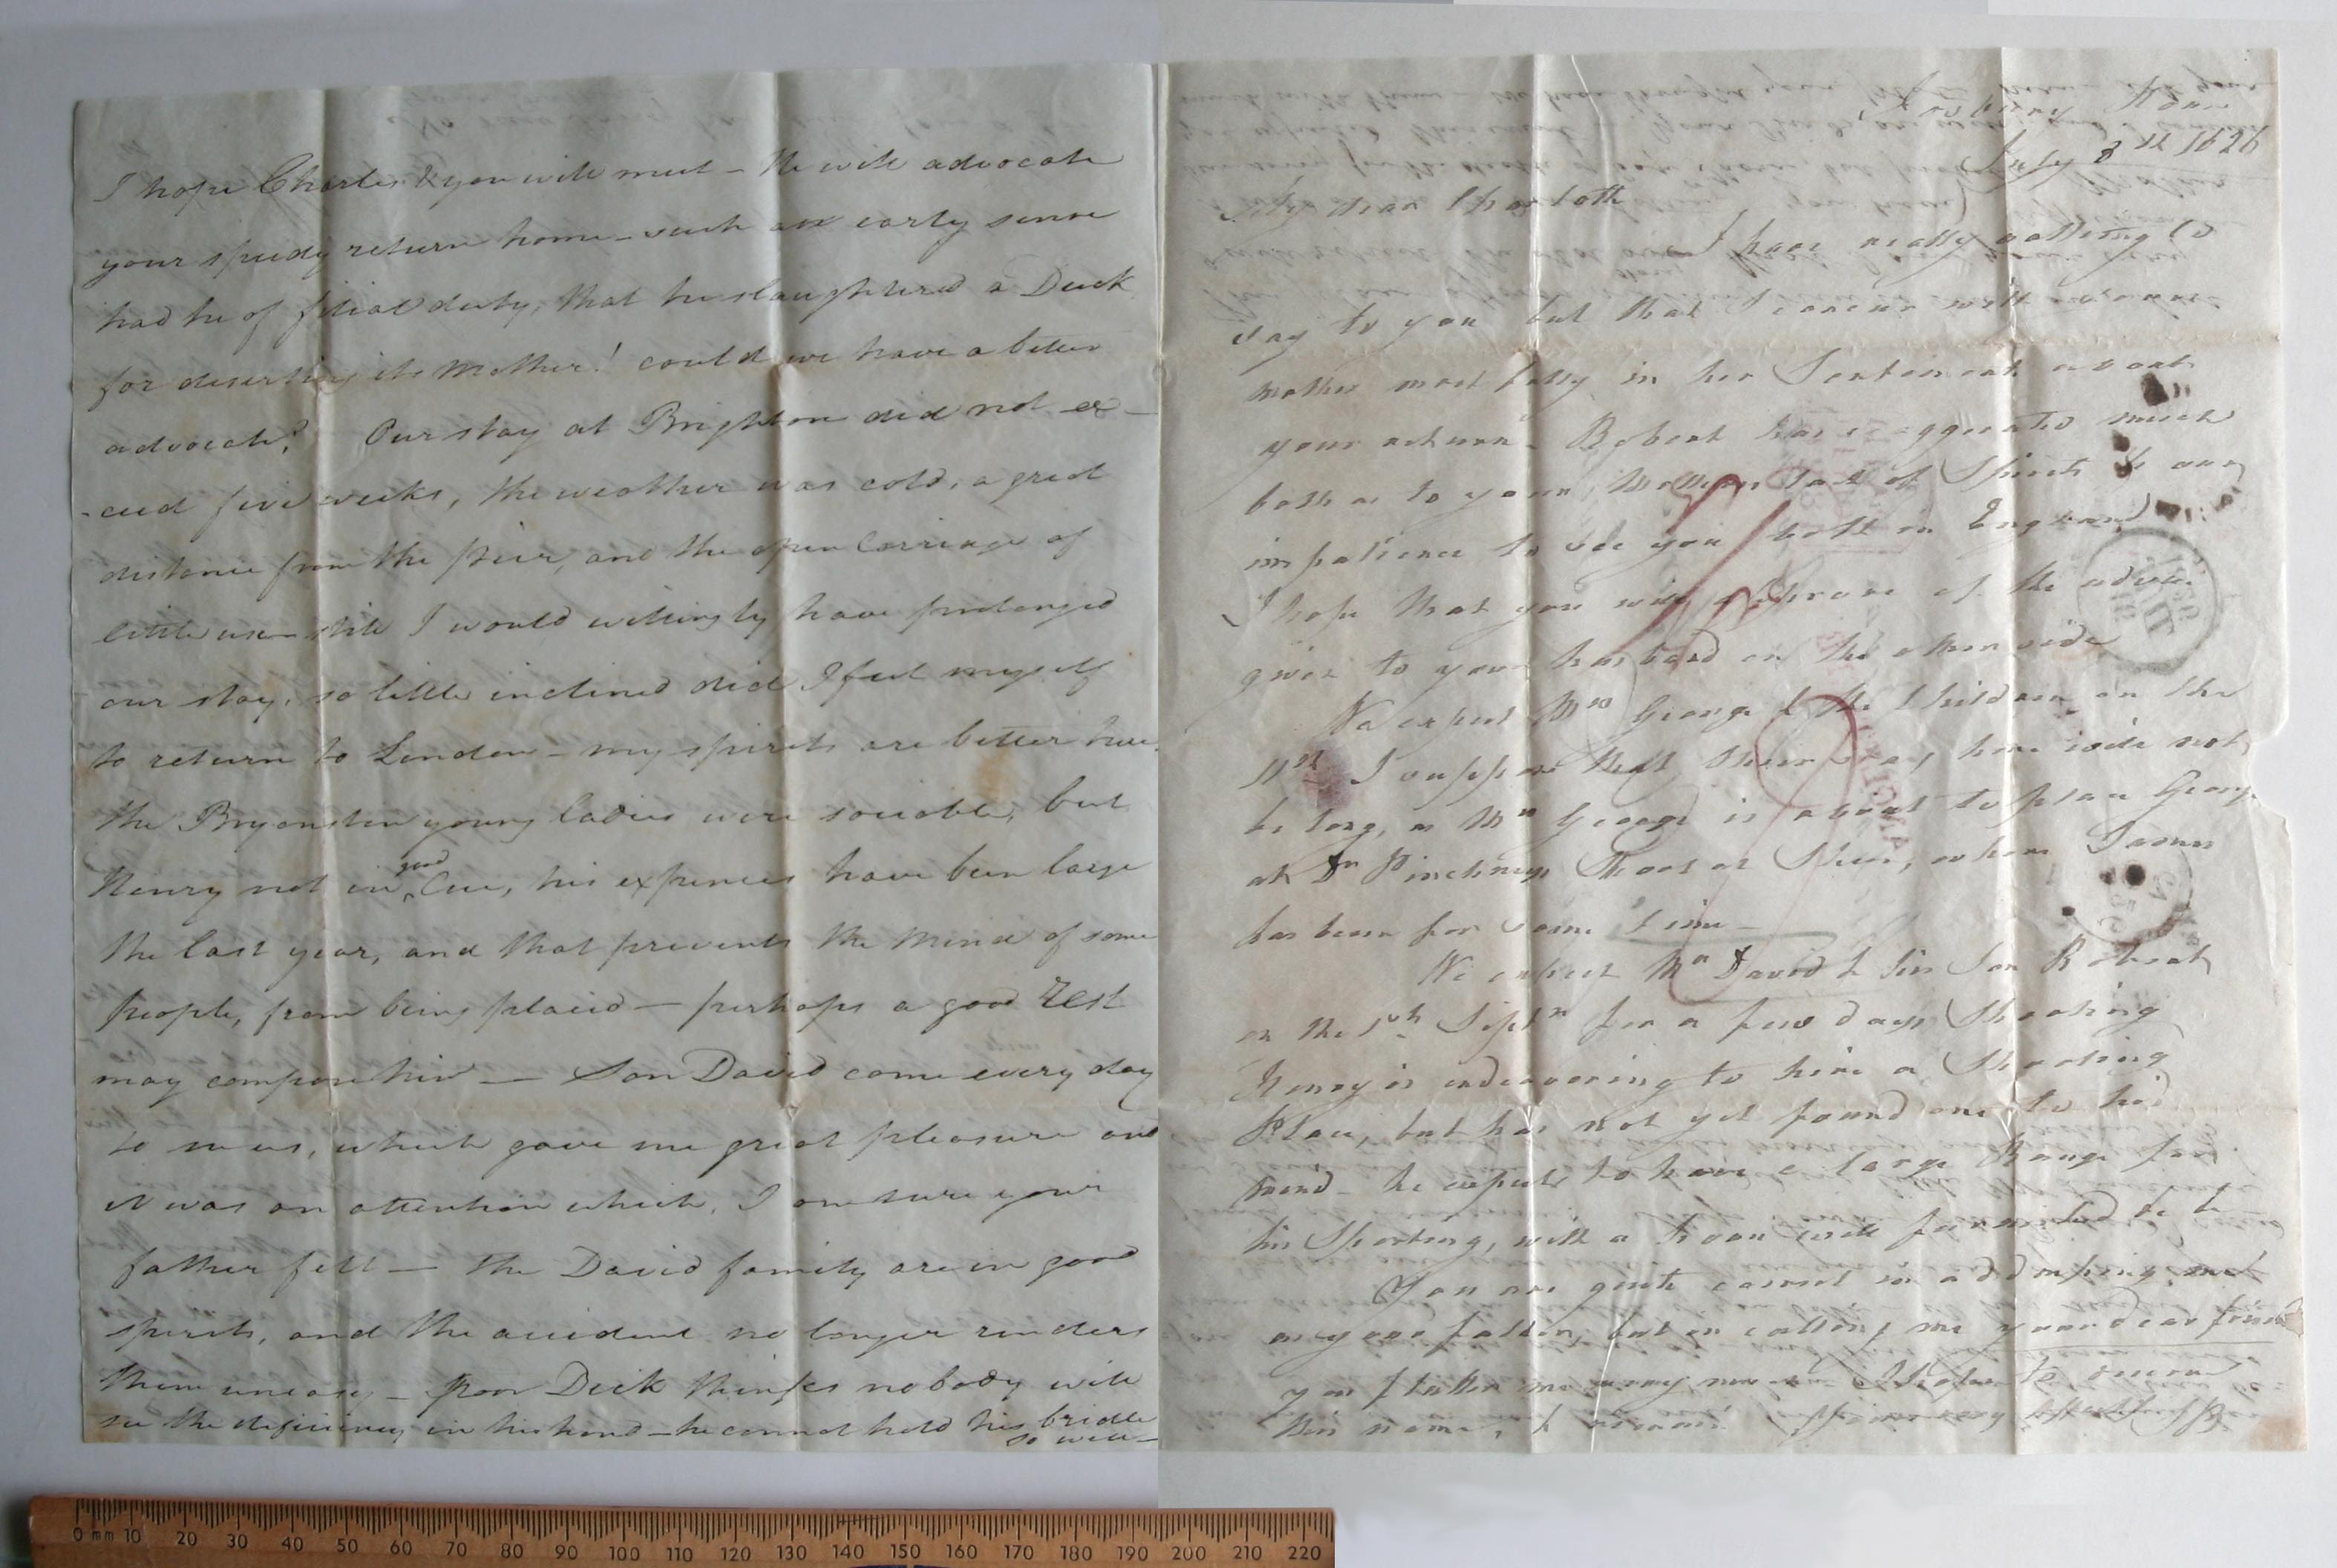 I hope Charles & you will meet – He will advocate
your speedy return home – such an early sense
had he of filial duty, that he slaughtered a Duck
for deserting its Mother! could we have a better
advocate? Our stay at Brighton did not ex-
-ceed five weeks, the weather was cold, a great
distance from the pier, and the open Carriage of
little use – still I would willingly have prolonged
our stay, so little inclined did I feel myself
to return to London – my spirits are better here.
the Bryanston young ladies were sociable, but
Henry not in good Cue, his expences have been large
the last year, and that prevents the Mind of some
People, from being placid — perhaps a good Rest
may compose him — Son David came every day
to see us, which gave me great pleasure and
it was an attention which, I am sure your
father felt — the David family are in good
spirits, and the accident no longer renders
them uneasy – poor Dick thinks nobody will
see the deficiency in his hand – he cannot hold his bridle
so well –
July 8th 1826
My dear Charlotte
I have really nothing to
say to you but that I concur with
mother most fully in her Sentiments about
your return – Robert has exaggerated much
both as to your Mothers of Spirits & our
impatience to see you both in England
I hope that you will approve of the advice
given to your husband on the other side
We expect Mrs George & the Children on the
11th I suppose that their stay here will not
be long, as Mrs George is about to place George
at Dr School at Sheen, where James
has been for some time –
We expect Mr David & his Son Robert
on the Septr for a few days Shooting
Henry is endeavoring to hire a Shooting
Place, but has not yet found one to his
mind – he expects to have a large Range for
his Sporting, with a House well furnished &c &c
You are quite correct in addressing me
as your father, but in calling me your dear friend
you flatter me
this name, & remain